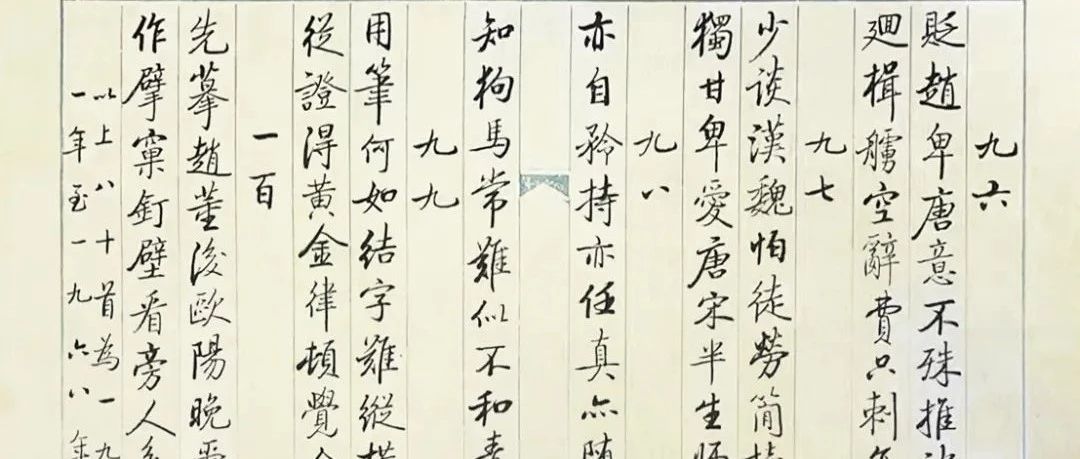 九六
貶趙卑唐意不殊推
迴楫艣空辭費只刺
九七
少談漢魏怕徒勞簡
獨甘卑愛唐宋半生師
九八
亦自矜持亦任真亦
知狗馬常難似不和
九九
用筆何如結字難縱橫
從證得黃金律頓覺
一百
先摹趙董後歐陽晚
作擘窠釘壁看旁人
以上八十首為一九
一年至一九六八年